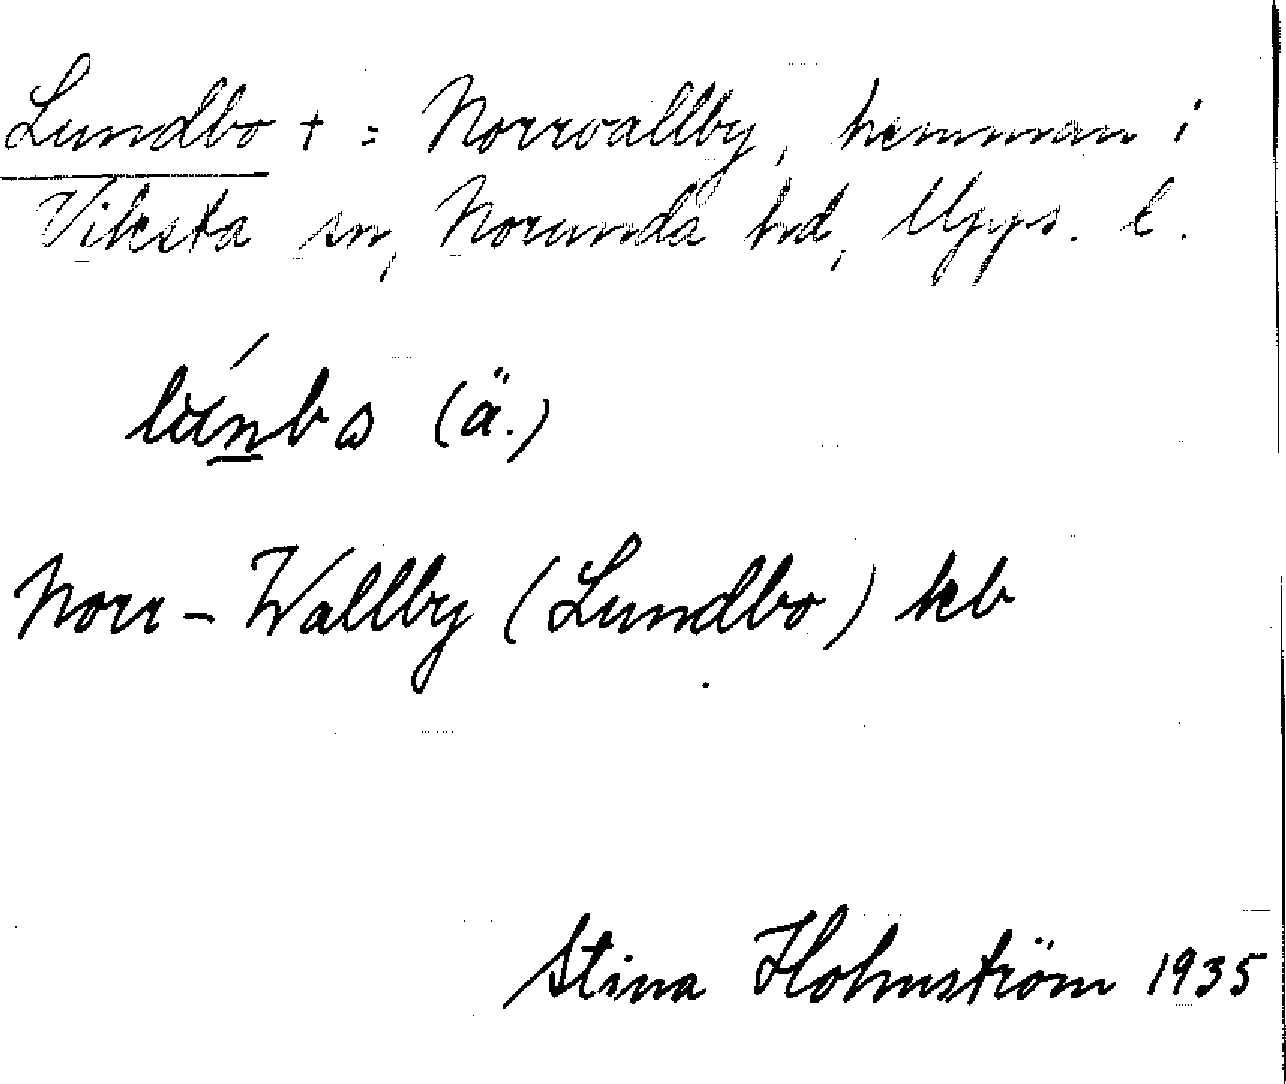 Lundbo + = Norrvallby, hemman i
Viksta sn, Norunda hd, Upps. l.
(ä.)
Norr-Wallby (Lundbo) kb
Stina Holmström 1935